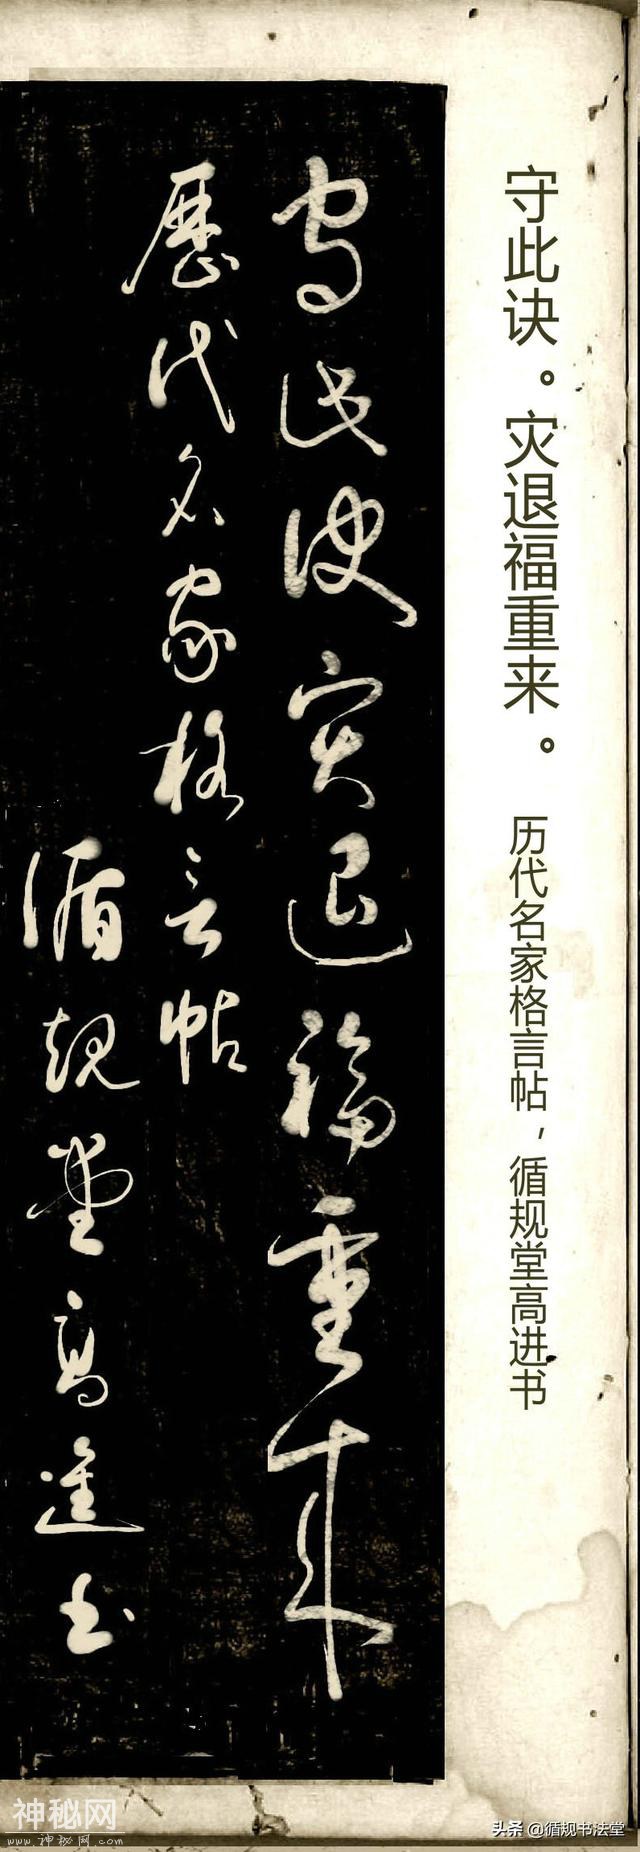 守此诀。灾退福重来。
历代名家格言帖，循规堂高进书
守此诀灾退福重来
歷代名家格言帖
循规堂高進书
神秘网
www.神秘网.com
头条 @循规书法堂